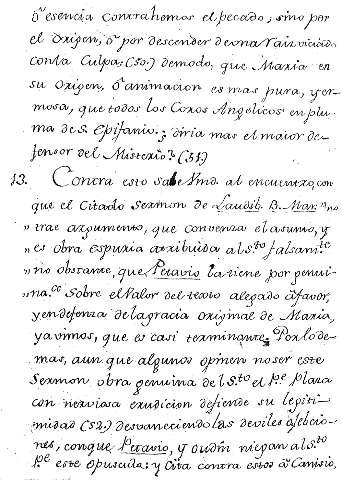 ō esencia contrahemos el pecado; sino por
el origen, ō por descender de una raiz viciada
con la Culpa; (50.) de modo, que Maria en
su Origen, ō animacion es mas pura, y er-
mosa, que todos los Coros Angelicos en plu-
ma de S. Epifanio.; diria mas el maior de-
fensor del Misterio? (51.)
13. Contra esto sale Vmd. al encuentro, con
que el Citado Sermon de Laudib. B. Mar. no
trae argumento, que convenza el asunto, y
es obra espuria atribuida al S.to falsam.te
no obstante, que Petavio la tiene por genui-
na. Sobre el Valor del texto alegado ā favor,
y en defenza de la gracia original de Maria,
ya vimos, que es casi terminante. Por lo de-
mas, aun que algunos opinen no ser este
Sermon obra genuina del S.to el P.e Plaza
con nerviosa erudicion defiende su legiti-
midad (52.) desvaneciendo las deviles objecio-
nes, con que Petavio, y Oudin niegan al S.to
P.e este opusculo: y Cita contra estos ā Canisio,